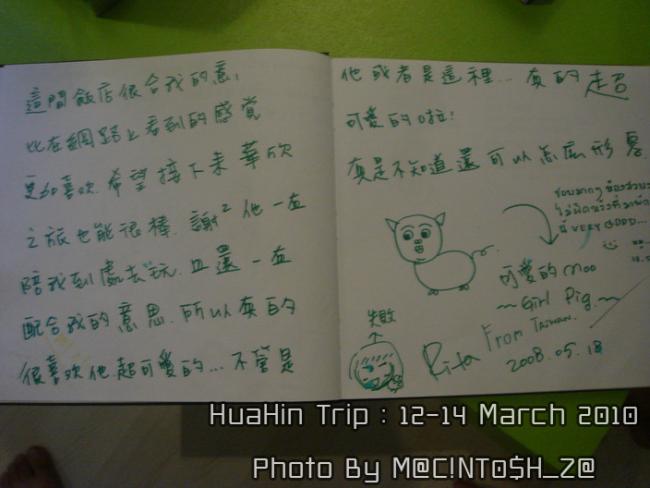 這間飯店很合我的意,
比在網路上看到的感覺
更加喜歡.希望接下來華欣
之旅也能很棒.謝²他一直
陪我到處去玩.且還一直
配合我的意思.所以真的
很喜歡他超可愛的...不管是
他或者是這裡...真的超
可愛的啦!
真是不知道還可以怎麼形容
VERY GOOD...
可愛的moo
~Girl Pig.~
失敗
Rita From TAIWAN.
2008.05.18
HuaHin Trip : 12-14 March 2010
Photo By M@C!NTO$H_Z@